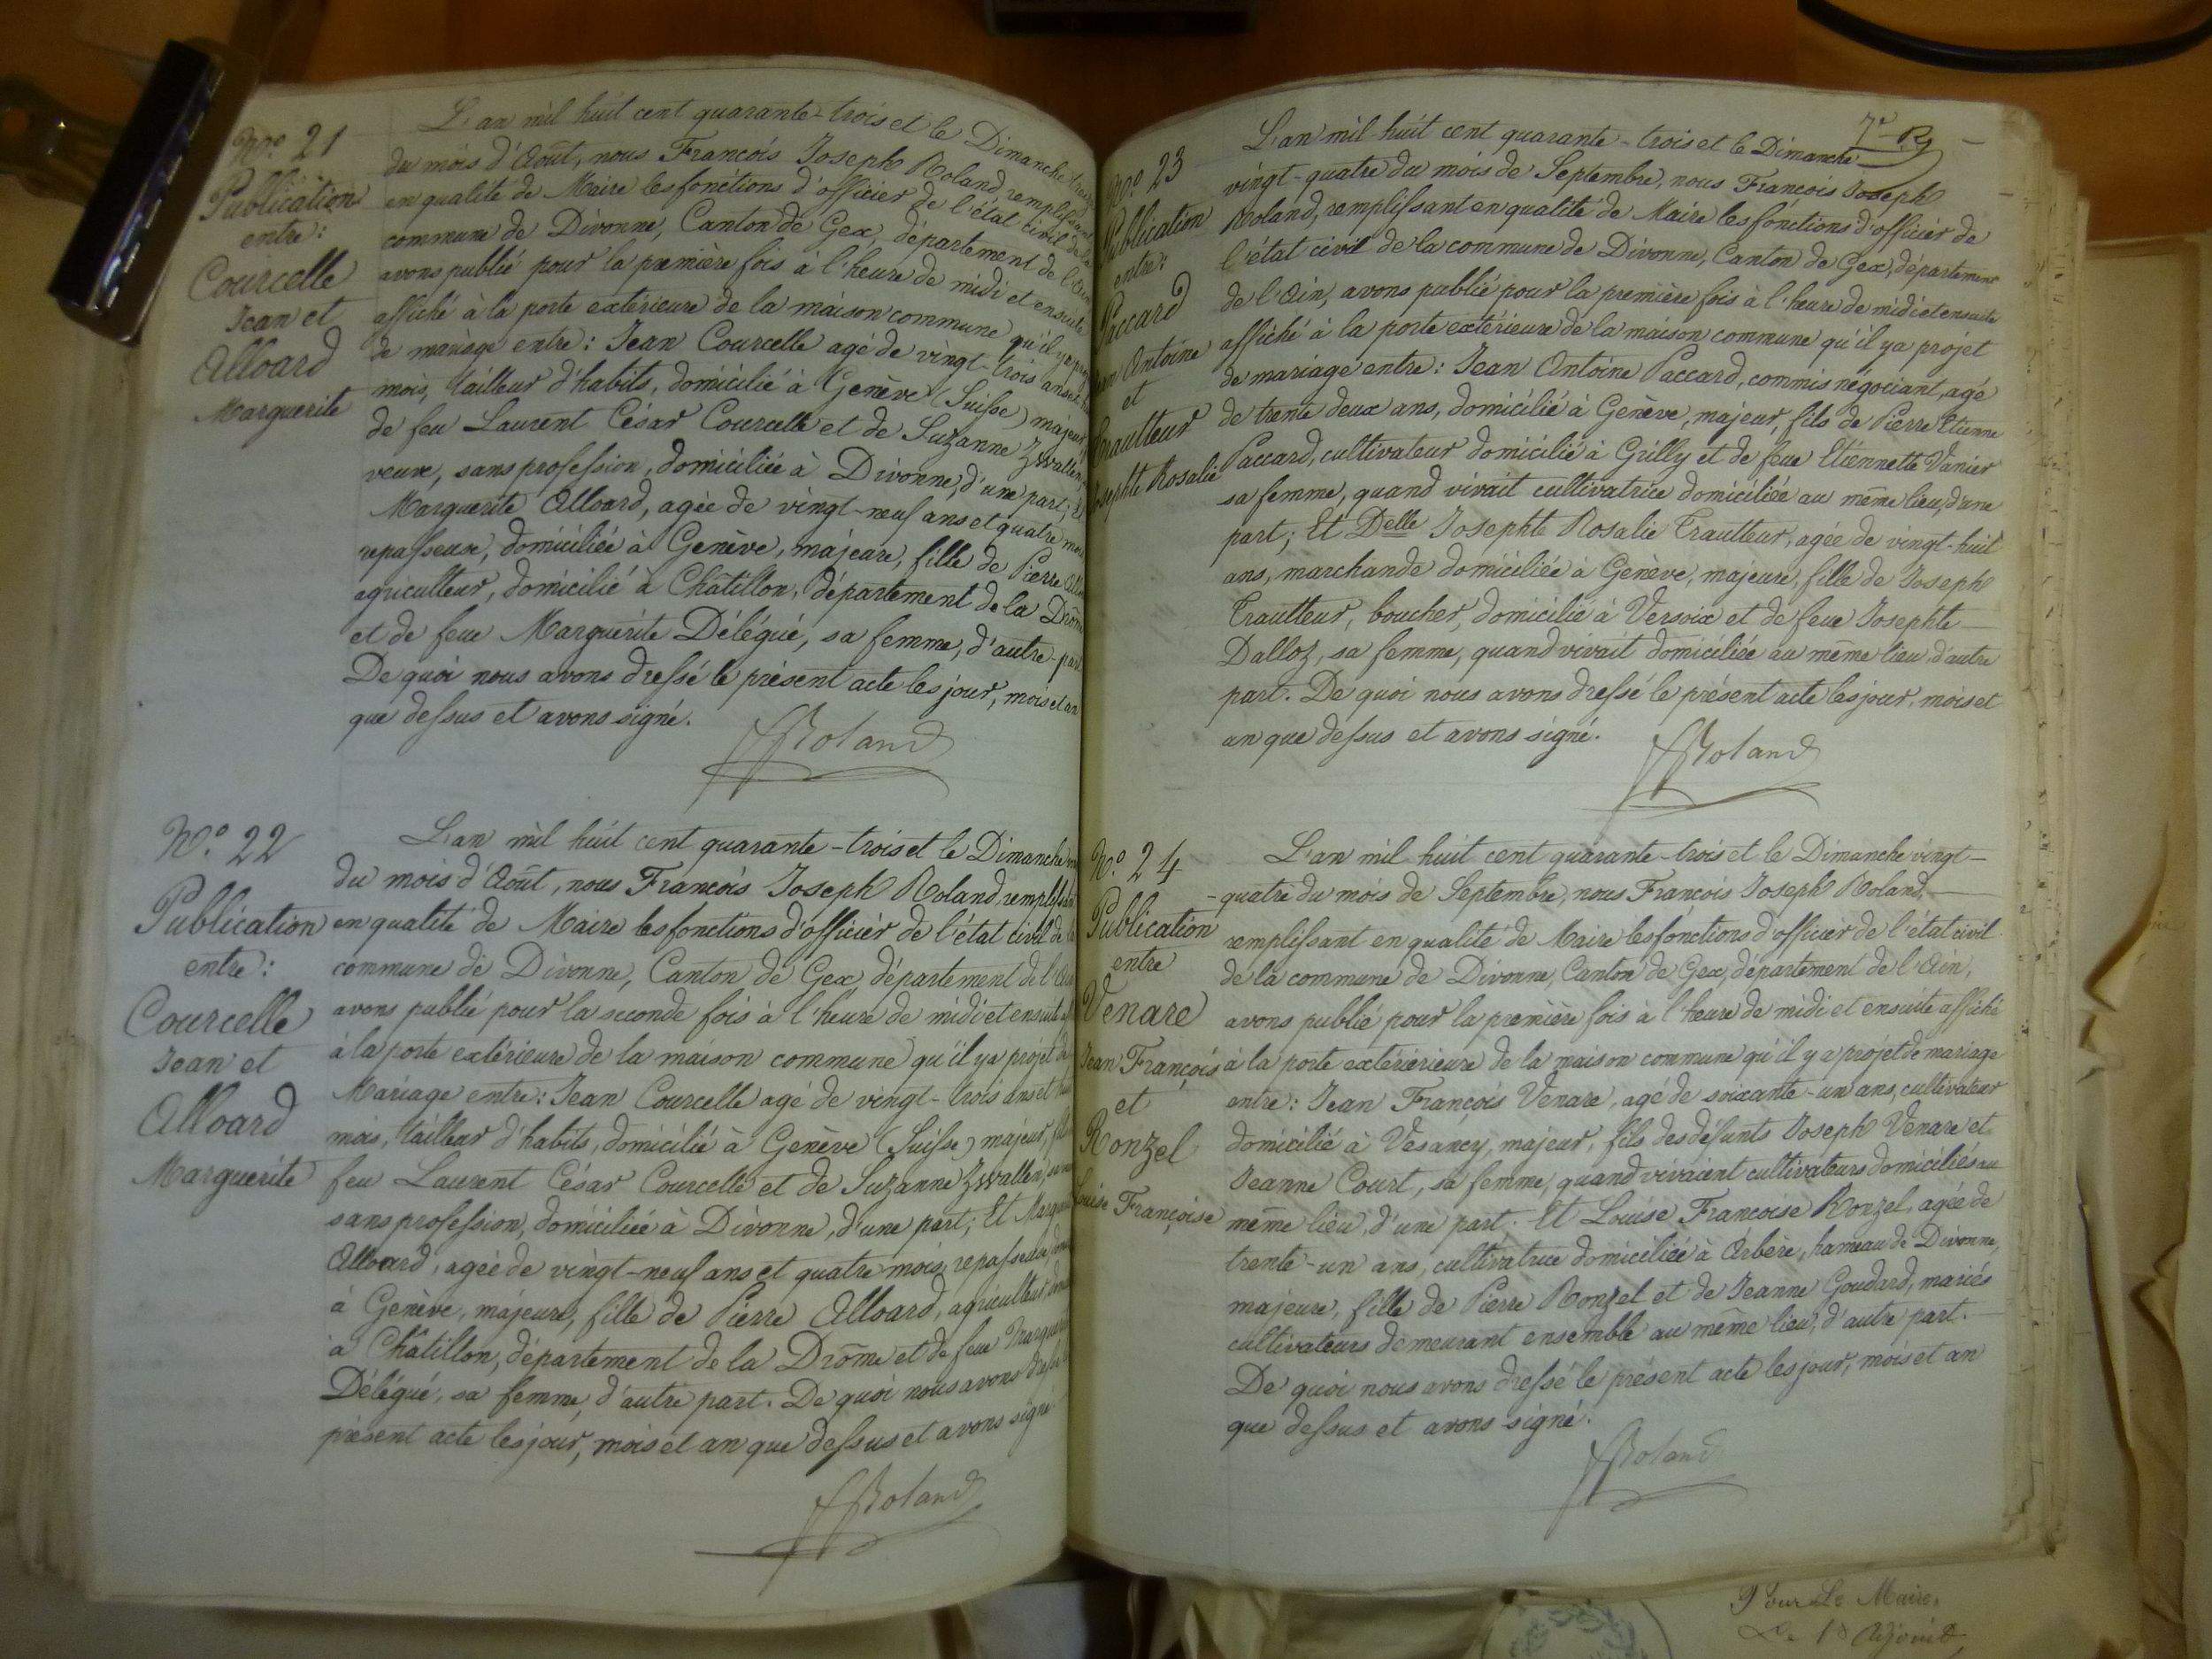 N.o 21
Publication
entre:
Courcelle
Jean et
Alloard
Marguerite
L'an mil huit cent quarante-trois et le Dimanche
du mois d'Août, nous François Joseph Roland, remplissant
en qualité de Maire les fonctions d'officier de l'état civil de la
commune de Divonne, Canton de Gex, département de l'Ain
avons publié pour la première fois à l'heure de midi et ensuite
affiché à la porte extérieure de la maison commune qu'il y a
de mariage entre: Jean Courcelle agé de vingt-trois ans et
mois, tailleur d'habits, domicilié à Genève (Suisse) majeur,
de feu Laurent César Courcelle et de Suzanne Zwallen,
veuve, sans profession, domiciliée à Divonne, d'une part; Et
Marguerite Alloard, agée de vingt-neuf ans et quatre mois
repasseuse, domiciliée à Genève, majeure, fille de Pierre
agriculteur, domicilié à Châtillon, département de la Drôme
et de feue Marguerite Délégué, sa femme, d'autre part
De quoi nous avons dressé le présent acte les jour, mois et an
que dessus et avons signé.
FJRoland
N.o 22
Publication
entre:
Courcelle
Jean et
Alloard
Marguerite
L'an mil huit cent quarante-trois et le Dimanche
du mois d'Août, nous François Joseph Roland, remplissant
en qualité de Maire les fonctions d'officier de l'état civil de la
commune de Divonne, Canton de Gex, département de l'Ain
avons publié pour la seconde fois à l'heure de midi et ensuite
à la porte extérieure de la maison commune qu'il y a projet de
Mariage entre: Jean Courcelle agé de vingt-trois ans et
mois, tailleur d'habits, domicilié à Genève (Suisse) majeur,
feu Laurent César Courcelle et de Suzanne Zwallen,
sans profession, domiciliée à Divonne, d'une part; Et
Alloard, agée de vingt-neuf ans et quatre mois, repasseuse,
à Genève, majeure, fille de Pierre Alloard, agriculteur,
à Châtillon, département de la Drôme et de feue
Délégué, sa femme, d'autre part. De quoi nous avons
présent acte les jour, mois et an que dessus et avons signé
FJRoland
7e
N.o 23
Publication
entre:
Paccard
Antoine
et
Trautteur
Josephte Rosalie
L'an mil huit cent quarante-trois et le Dimanche
vingt-quatre du mois de Septembre, nous François Joseph
Roland, remplissant en qualité de Maire les fonctions d'officier de
l'état civil de la commune de Divonne, Canton de Gex, département
de l'Ain, avons publié pour la première fois à l'heure de midi et ensuite
affiché à la porte extérieure de la maison commune qu'il y a projet
de mariage entre: Jean Antoine Paccard, commis négociant, agé
de trente deux ans, domicilié à Genève, majeur, fils de Pierre Etienne
Paccard, cultivateur domicilié à Grilly et de feue Etiennette Vanier
sa femme, quand vivait cultivatrice domiciliée au même lieu, d'une
part; Et Delle Josephte Rosalie Trautteur, agée de vingt-huit
ans, marchande domiciliée à Genève, majeure, fille de Joseph
Trautteur, boucher, domicilié à Versoix et de feue Josephte
Dalloz, sa femme, quand vivait domiciliée au même lieu, d'autre
part. De quoi nous avons dressé le présent acte les jour, mois et
an que dessus et avons signé.
FJRoland
N.o 24
Publication
entre
Venare
Jean François
et
Ronzel
Louise Françoise
L'an mil huit cent quarante-trois et le Dimanche vingt-
-quatre du mois de Septembre, nous François Joseph Roland,
remplissant en qualité de Maire les fonctions d'officier de l'état civil
de la commune de Divonne, Canton de Gex, département de l'Ain,
avons publié pour la première fois à l'heure de midi et ensuite affiché
à la porte extérieure de la maison commune qu'il y a projet de mariage
entre: Jean François Venare, agé de soixante-un ans, cultivateur
domicilié à Vesancy, majeur, fils des défunts Joseph Venare et
Jeanne Court, sa femme, quand vivaient cultivateurs domiciliés au
même lieu, d'une part. Et Louise Francoise Ronzel, agée de
trente-un ans, cultivatrice domiciliée à Arbère, hameau de Divonne,
majeure, fille de Pierre Ronzel et de Jeanne Goudard, mariés
cultivateurs demeurant ensemble au même lieu, d'autre part.
De quoi nous avons dressé le présent acte les jour, mois et an
que dessus et avons signé.
FJRoland
Pour Le Maire,
Adjoint